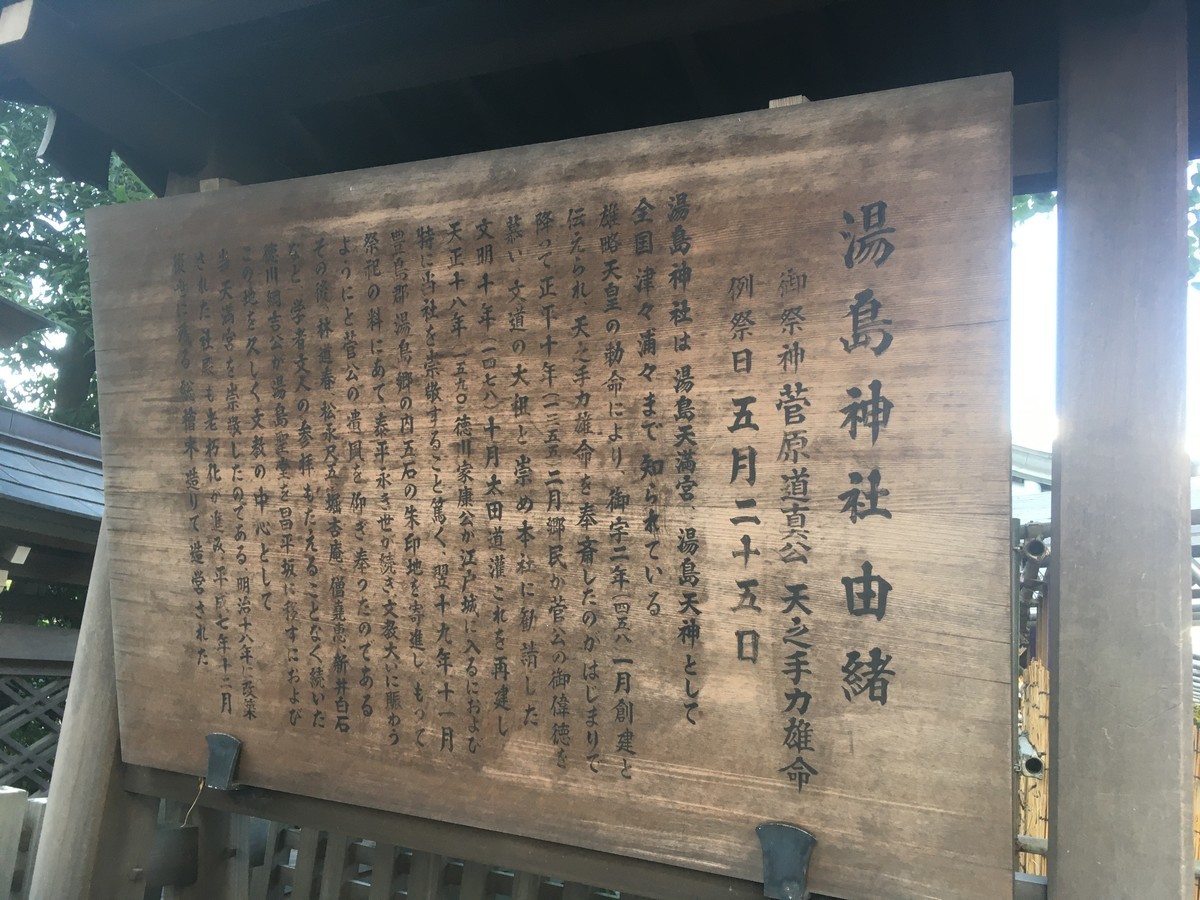 湯島神社由緒
御祭神 菅原道真公 天之手力雄命
例祭日 五月二十五日
湯島神社は 湯島天満宮、湯島天神として
全国津々浦々まで知られている
雄略天皇の勅命により、御宇二年(四五八)一月創建と
伝えられ 天之手力雄命を奉斎したのがはじまりで
降って正平十年(一三五五)二月郷民が菅公の御偉徳を
慕い 文道の大祖と崇め本社に勧請した
文明十年(一四七八)十月太田道灌これを再建し
天正十八年(一五九〇)徳川家康公が江戸城に入るにおよび
特に当社を崇敬すること篤く、翌十九年十一月
豊島郡湯島郷の内五石の朱印地を寄進し もって
祭祀の料にあて 泰平永き世が続き 文教大いに賑わう
ようにと菅公の遺風を仰ぎ奉ったのである
その後、林道春 松永尺五 堀杏庵 僧堯恵 新井白石
など 学者文人の参拝もたえることなく続いた
徳川綱吉公が湯島聖堂を昌平坂に移すにおよび
この地を久しく文教の中心として
当天満宮を崇敬したのである 明治十八年に改築
された社殿も老朽化が進み、平成七年十二月
総檜木造りで造営された